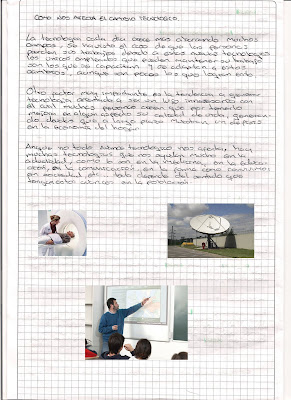 COMO NOS AFECTA EL CAMBIO TECNOLOGICO.
La tecnologia cada dia crece mas abarcando muchos
campos, se ha visto el caso de que las personas
pierden sus trabajos debido a estas nuevas tecnologias
los unicos empleados que pueden mantener su trabajo
son los que se capacitan y se adaptan a estos
cambios, aunque son pocos los que logran esto.
Otro factor muy importante es la tendencia a generar
tecnologia orientada a ser un lujo innecesario con
el cual muchas personas creen que por tenerlo
mejora en algun aspecto su calidad de vida, generan
do deudas que a largo plazo muestran un
en la economia del hogar.
Aunque no todo Avance tecnologico nos afecta, hay
muchas tecnologias que nos ayudan mucho en la
actualidad, como lo son en la medicina, en la educa-
cion, en la comunicación, en la forma como convivimos
en sociedad, etc. todo depende del sentido que
tengan estos avances en la poblacion.